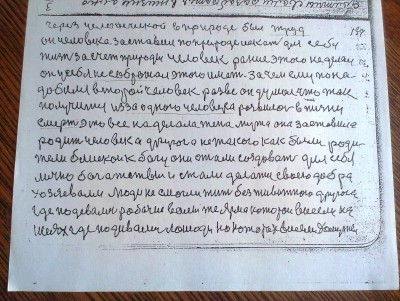 через человеческой в природе был труд
он человека заставил по природе искат для себя
жит за счет природы человек ранше этого не думал
он у себя не соображал этого имет. зачем ему пона
добился второй человек разве он думал что так
получится из за одного человека развилос в жизни
смерт это все наделала жена мужа она заставила
родит человека другога не такого как были роди-
тели близкои к богу они стали создават для себя
лично богатество и стали делатся своего добра
хозяевами люди не смогли жит без животного другога
где подевалис рабочие волы же Ярма которои висели на
шеях где подевалис лошади на которах висели хомуты,